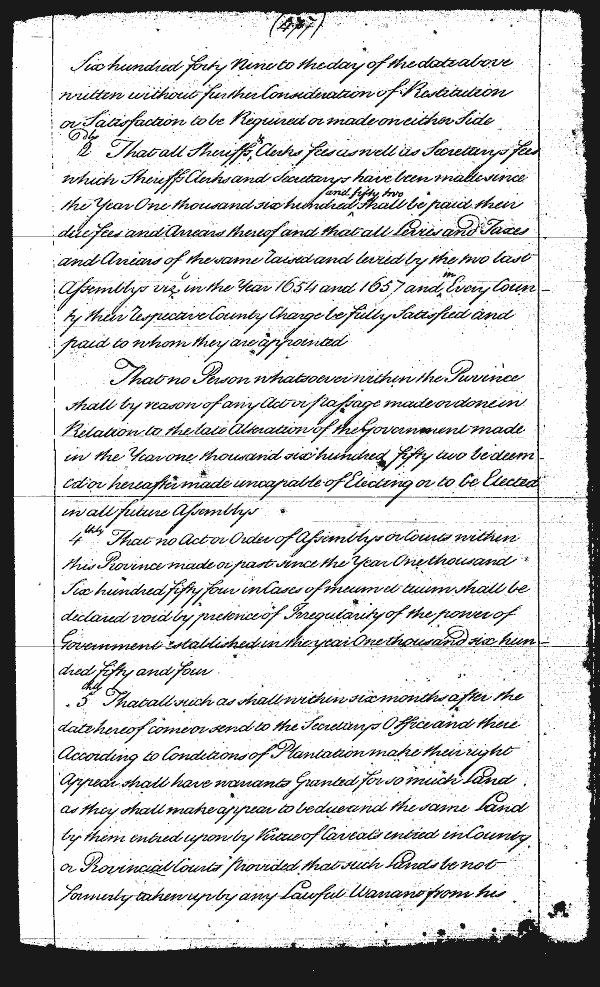 (477)
Six hundred forty Nine to the day of the date above
written without further Consideration of Restitution
or Satisfaction to be Required or made on either Side
2dly That all Sheriffs, Clerks fees as well as Secretarys fees
which Sheriffs Clerks and Secretarys have been made since
and fifty two
the Year One thousand six hundred shall be paid their
due fees and Arrears thereof and that all Levies and Taxes
and Arriars of the same raised and levied by the two last
Assemblys vizt in the Year 1654 and 1657 and in Every Coun-
ty their respective County Charge be fully Satisfied and
paid to whom they are appointed
That no Person whatsoever within the Province
shall by reason of any Act or passage made or done in
Relation to the late Alteration of the Government made
in the Year one thousand six hundred fifty two be deem-
ed or hereafter made uncapable of Electing or to be Elected
in all future Assemblys
4thly That no Act or Order of Assemblys or Courts within
this Province made or past since the Year One thousand
Six hundred fifty four in Cases of meum et tuum shall be
declared void by pretence of Irregularity of the power of
Government established in the year One thousand six hun-
dred fifty and four
5thly That all such as shall within six months after the
date hereof come or send to the Secretarys Office and there
According to Conditions of Plantation make their right
Appear shall have warrants Granted for so much Land
as they shall make appear to be due and the same Land
by them entred upon by Virtue of Caveats entred in County
or Provincial Courts provided that such Lands be not
formerly taken up by any Lawful Warrant from his